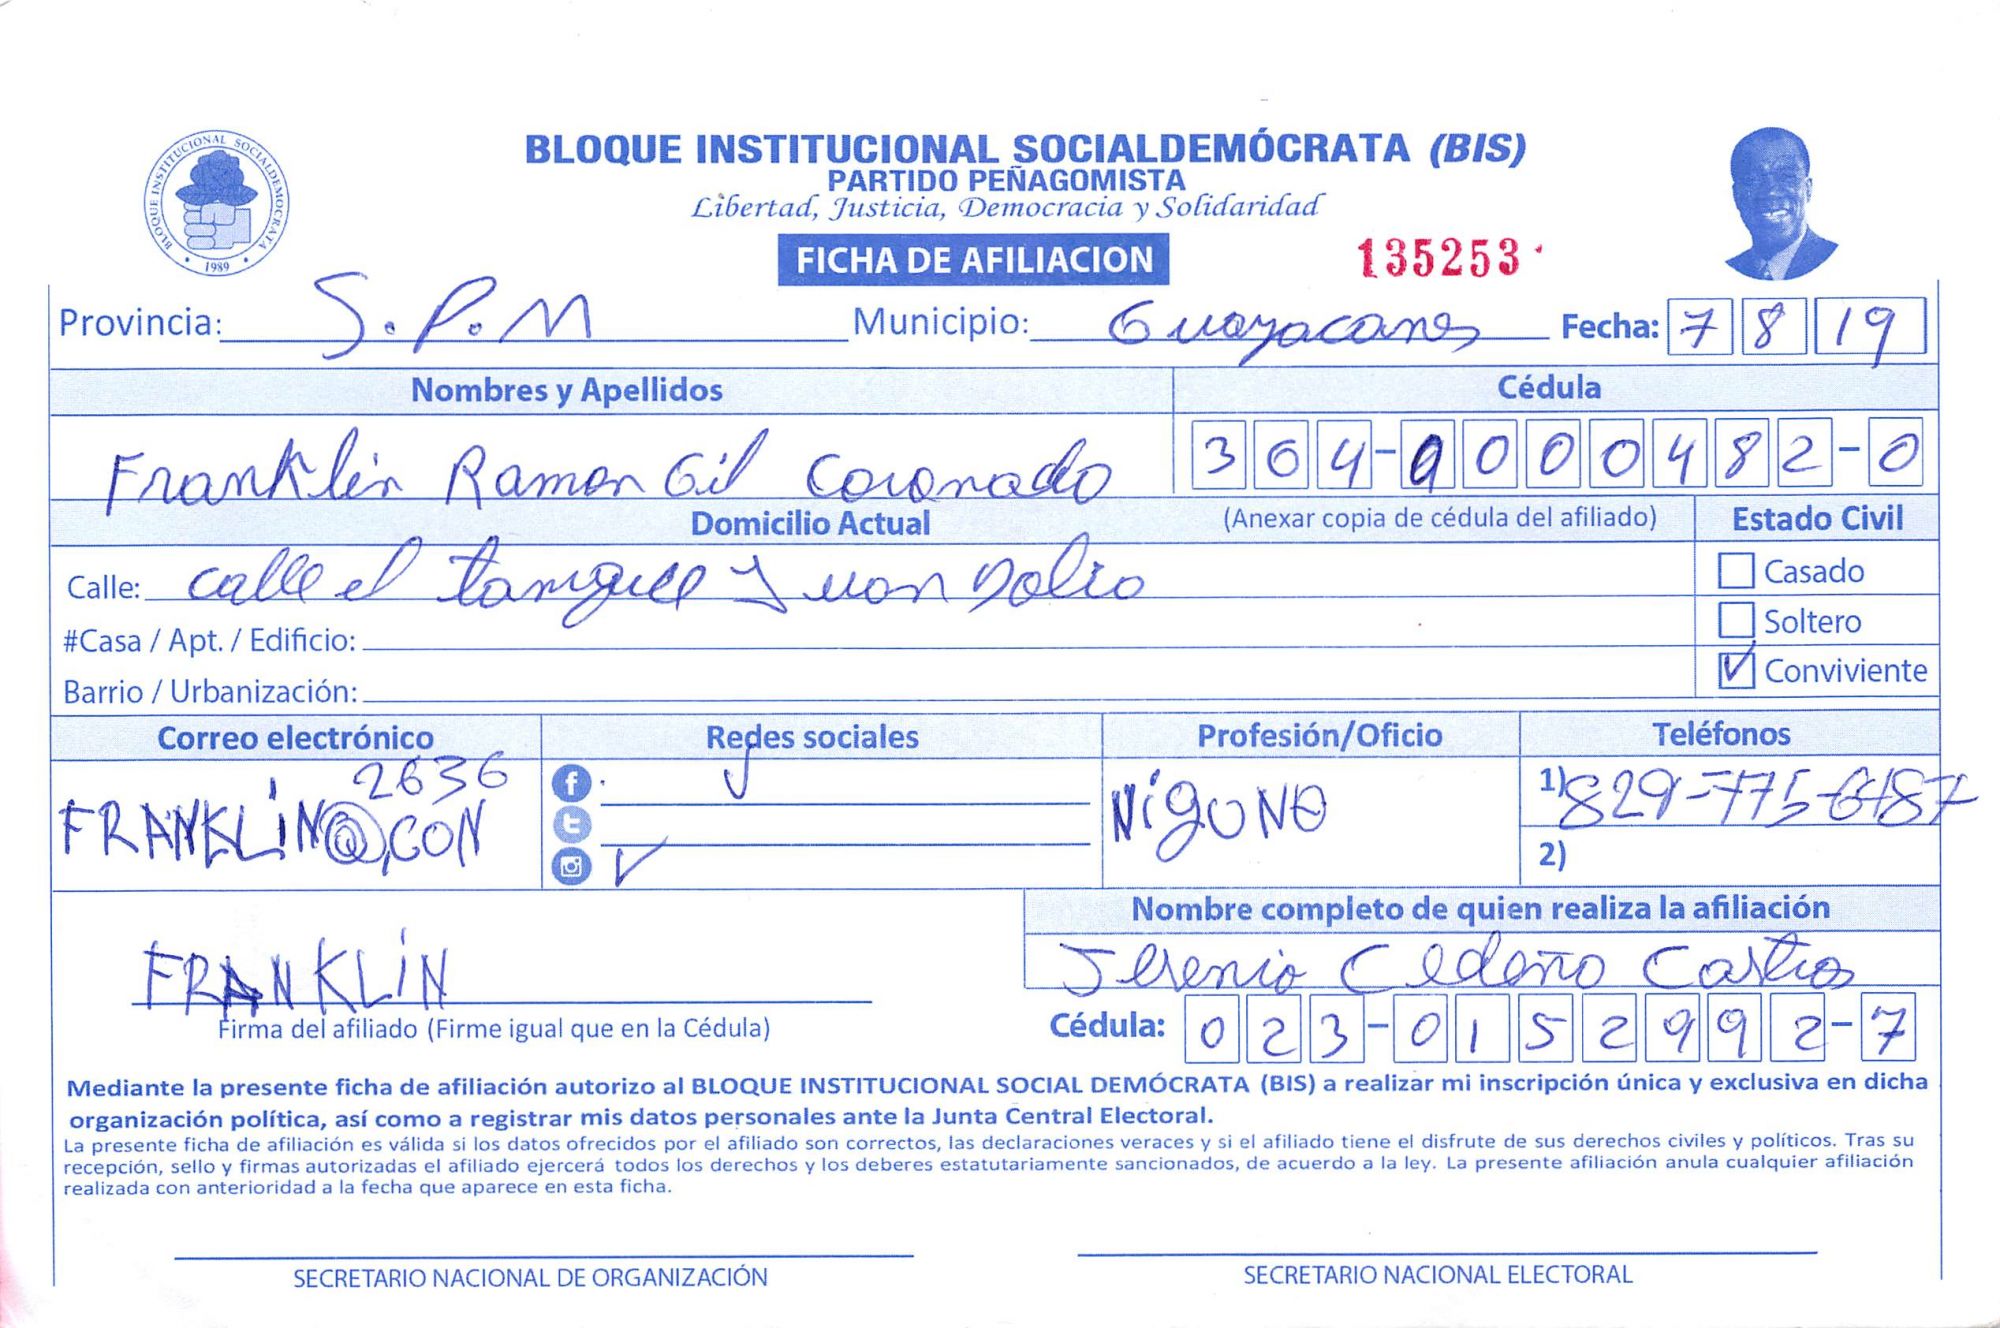 BLOQUE INSTITUCIONAL SOCIALDEMÓCRATA (BIS)
PARTIDO PEÑAGOMISTA
Libertad, Justicia, Democracia y Solidaridad
BLOQUE INSTITUCIONAL SOCIALDEMOCRATA
1989
FICHA DE AFILIACION
135253
Provincia: S.P.M Municipio: Guayacanes Fecha: 7 8 19
Nombres y Apellidos Cédula
Franklin Ramon Gil Coronado 364-0000482-0
Domicilio Actual (Anexar copia de cédula del afiliado) Estado Civil
Calle: calle el tanque Juan Dolio Casado
#Casa / Apt. / Edificio: Soltero
Barrio / Urbanización: Conviviente
Correo electrónico Redes sociales Profesión/Oficio Teléfonos
2636
FRANKLIN@.CON NiGUNO 1) 829-775-6187
2)
Nombre completo de quien realiza la afiliación
FRANKLIN Cedeño Castro
Firma del afiliado (Firme igual que en la Cédula) Cédula: 023-0152992-7
Mediante la presente ficha de afiliación autorizo al BLOQUE INSTITUCIONAL SOCIAL DEMÓCRATA (BIS) a realizar mi inscripción única y exclusiva en dicha
organización política, así como a registrar mis datos personales ante la Junta Central Electoral.
La presente ficha de afiliación es válida si los datos ofrecidos por el afiliado son correctos, las declaraciones veraces y si el afiliado tiene el disfrute de sus derechos civiles y políticos. Tras su
recepción, sello y firmas autorizadas el afiliado ejercerá todos los derechos y los deberes estatutariamente sancionados, de acuerdo a la ley. La presente afiliación anula cualquier afiliación
realizada con anterioridad a la fecha que aparece en esta ficha.
SECRETARIO NACIONAL DE ORGANIZACIÓN SECRETARIO NACIONAL ELECTORAL